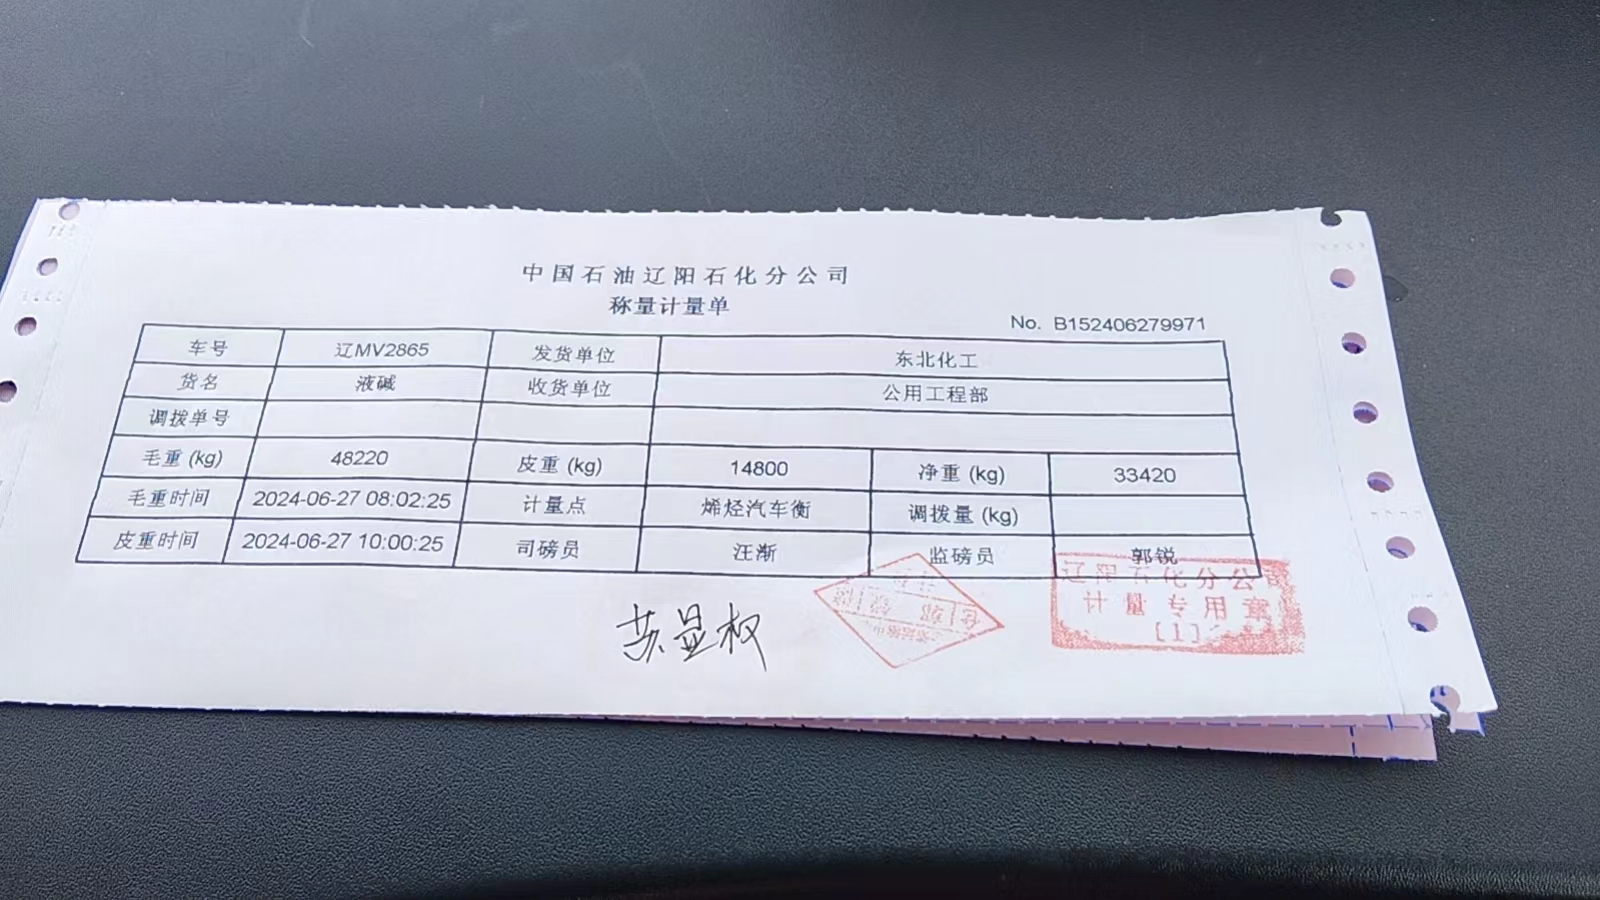 中国石油辽阳石化分公司
称量计量单
No. B152406279971
车号 辽MV2865 发货单位 东北化工
货名 液碱 收货单位 公用工程部
调拨单号
毛重 (kg) 48220 皮重 (kg) 14800 净重 (kg) 33420
毛重时间 2024-06-27 08:02:25 计量点 烯烃汽车衡 调拨量 (kg)
皮重时间 2024-06-27 10:00:25 司磅员 汪渐 监磅员 郭锐
辽阳石化分公司
计量专用章
[1]
苏显权